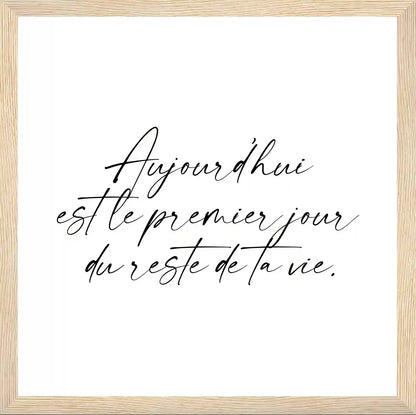 Aujourd'hui
est le premier jour
du reste de ta vie.